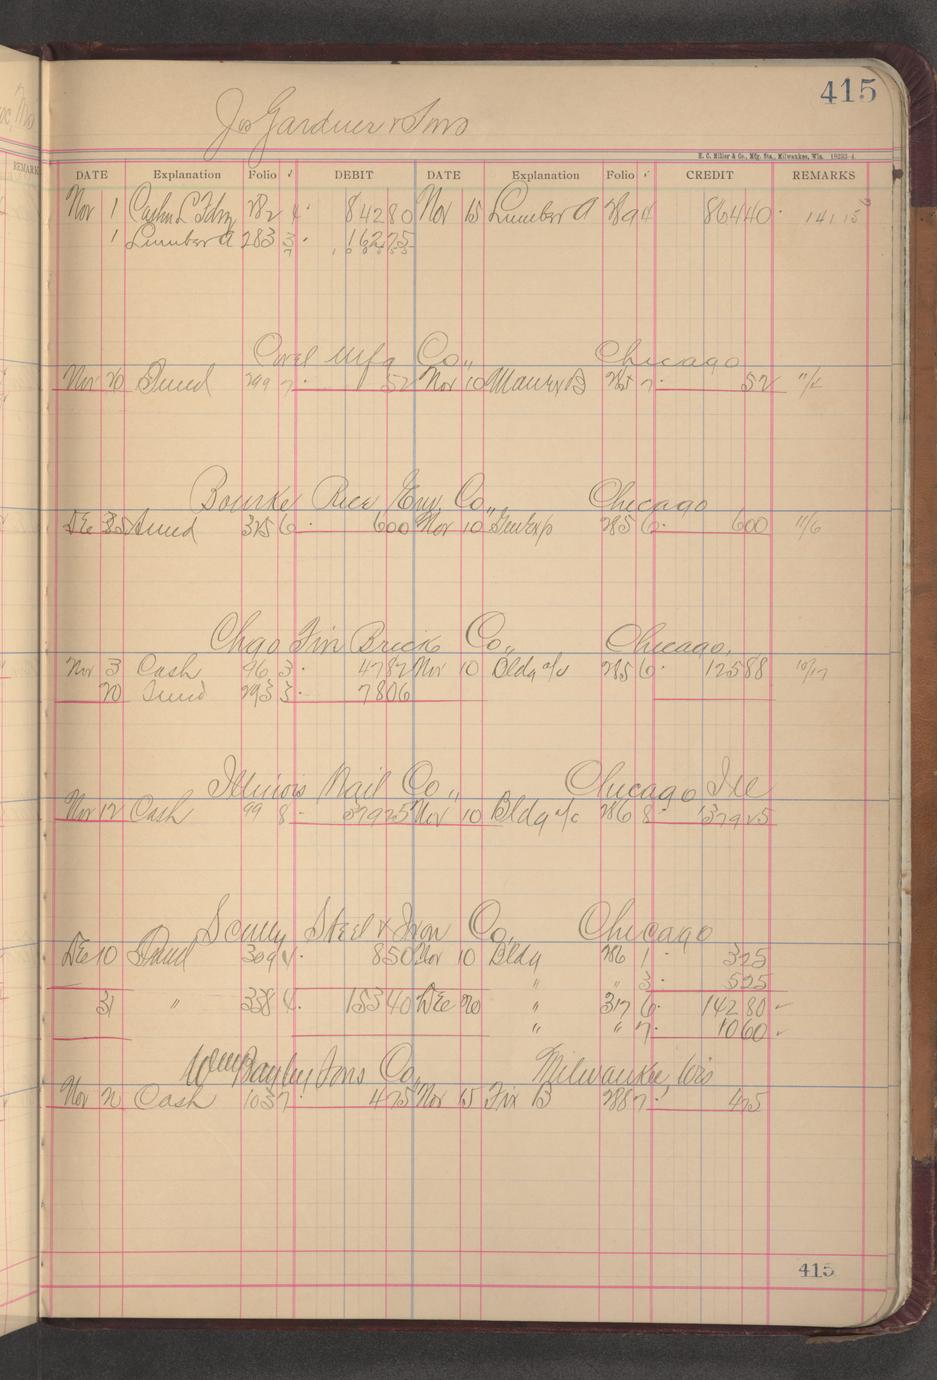 415
Jos Gardner & Sons
H. C. Miller & Co., Mfg. Sta., Milwaukee, Wis. 18293-4
DATE Explanation Folio √ DEBIT DATE Explanation Folio √ CREDIT REMARKS
Nov 1 282 4 842 80 Nov 15 Lumber A 289 4 864 40 141 15
1 Lumber A 283 3 162 75
Mfg Co., Chicago
Nov 20 Sund 299 7 52 Nov 10 B 285 7 52 11/2
Bourke Rice Env. Co., Chicago
Dec Sund 325 6 6 00 Nov 10 Gen Exp 285 6 6 00 11/6
Chgo Fire Brick Co., Chicago.
Nov 3 Cash 96 3 47 82 Nov 10 Bldg a/c 285 6 125 88 10/17
20 Sund 293 3 78 06
Illinois Nail Co., Chicago Ill
Nov 12 Cash 99 8 379 25 Nov 10 Bldg a/c 286 8 379 25
REMARKS
Scully Steel & Iron Co. Chicago
Dec 10 Sund 309 4 8 50 Nov 10 Bldg 286 1 3 25
" " 3 5 25
31 " 338 4 153 40 Dec 20 " 317 6 142 80 ✓
" " 7 10 60 ✓
Wm Bayley Sons Co., Milwaukee, Wis
Nov 20 Cash 103 7 4 75 Nov 15 Fix B 288 7 4 75
415